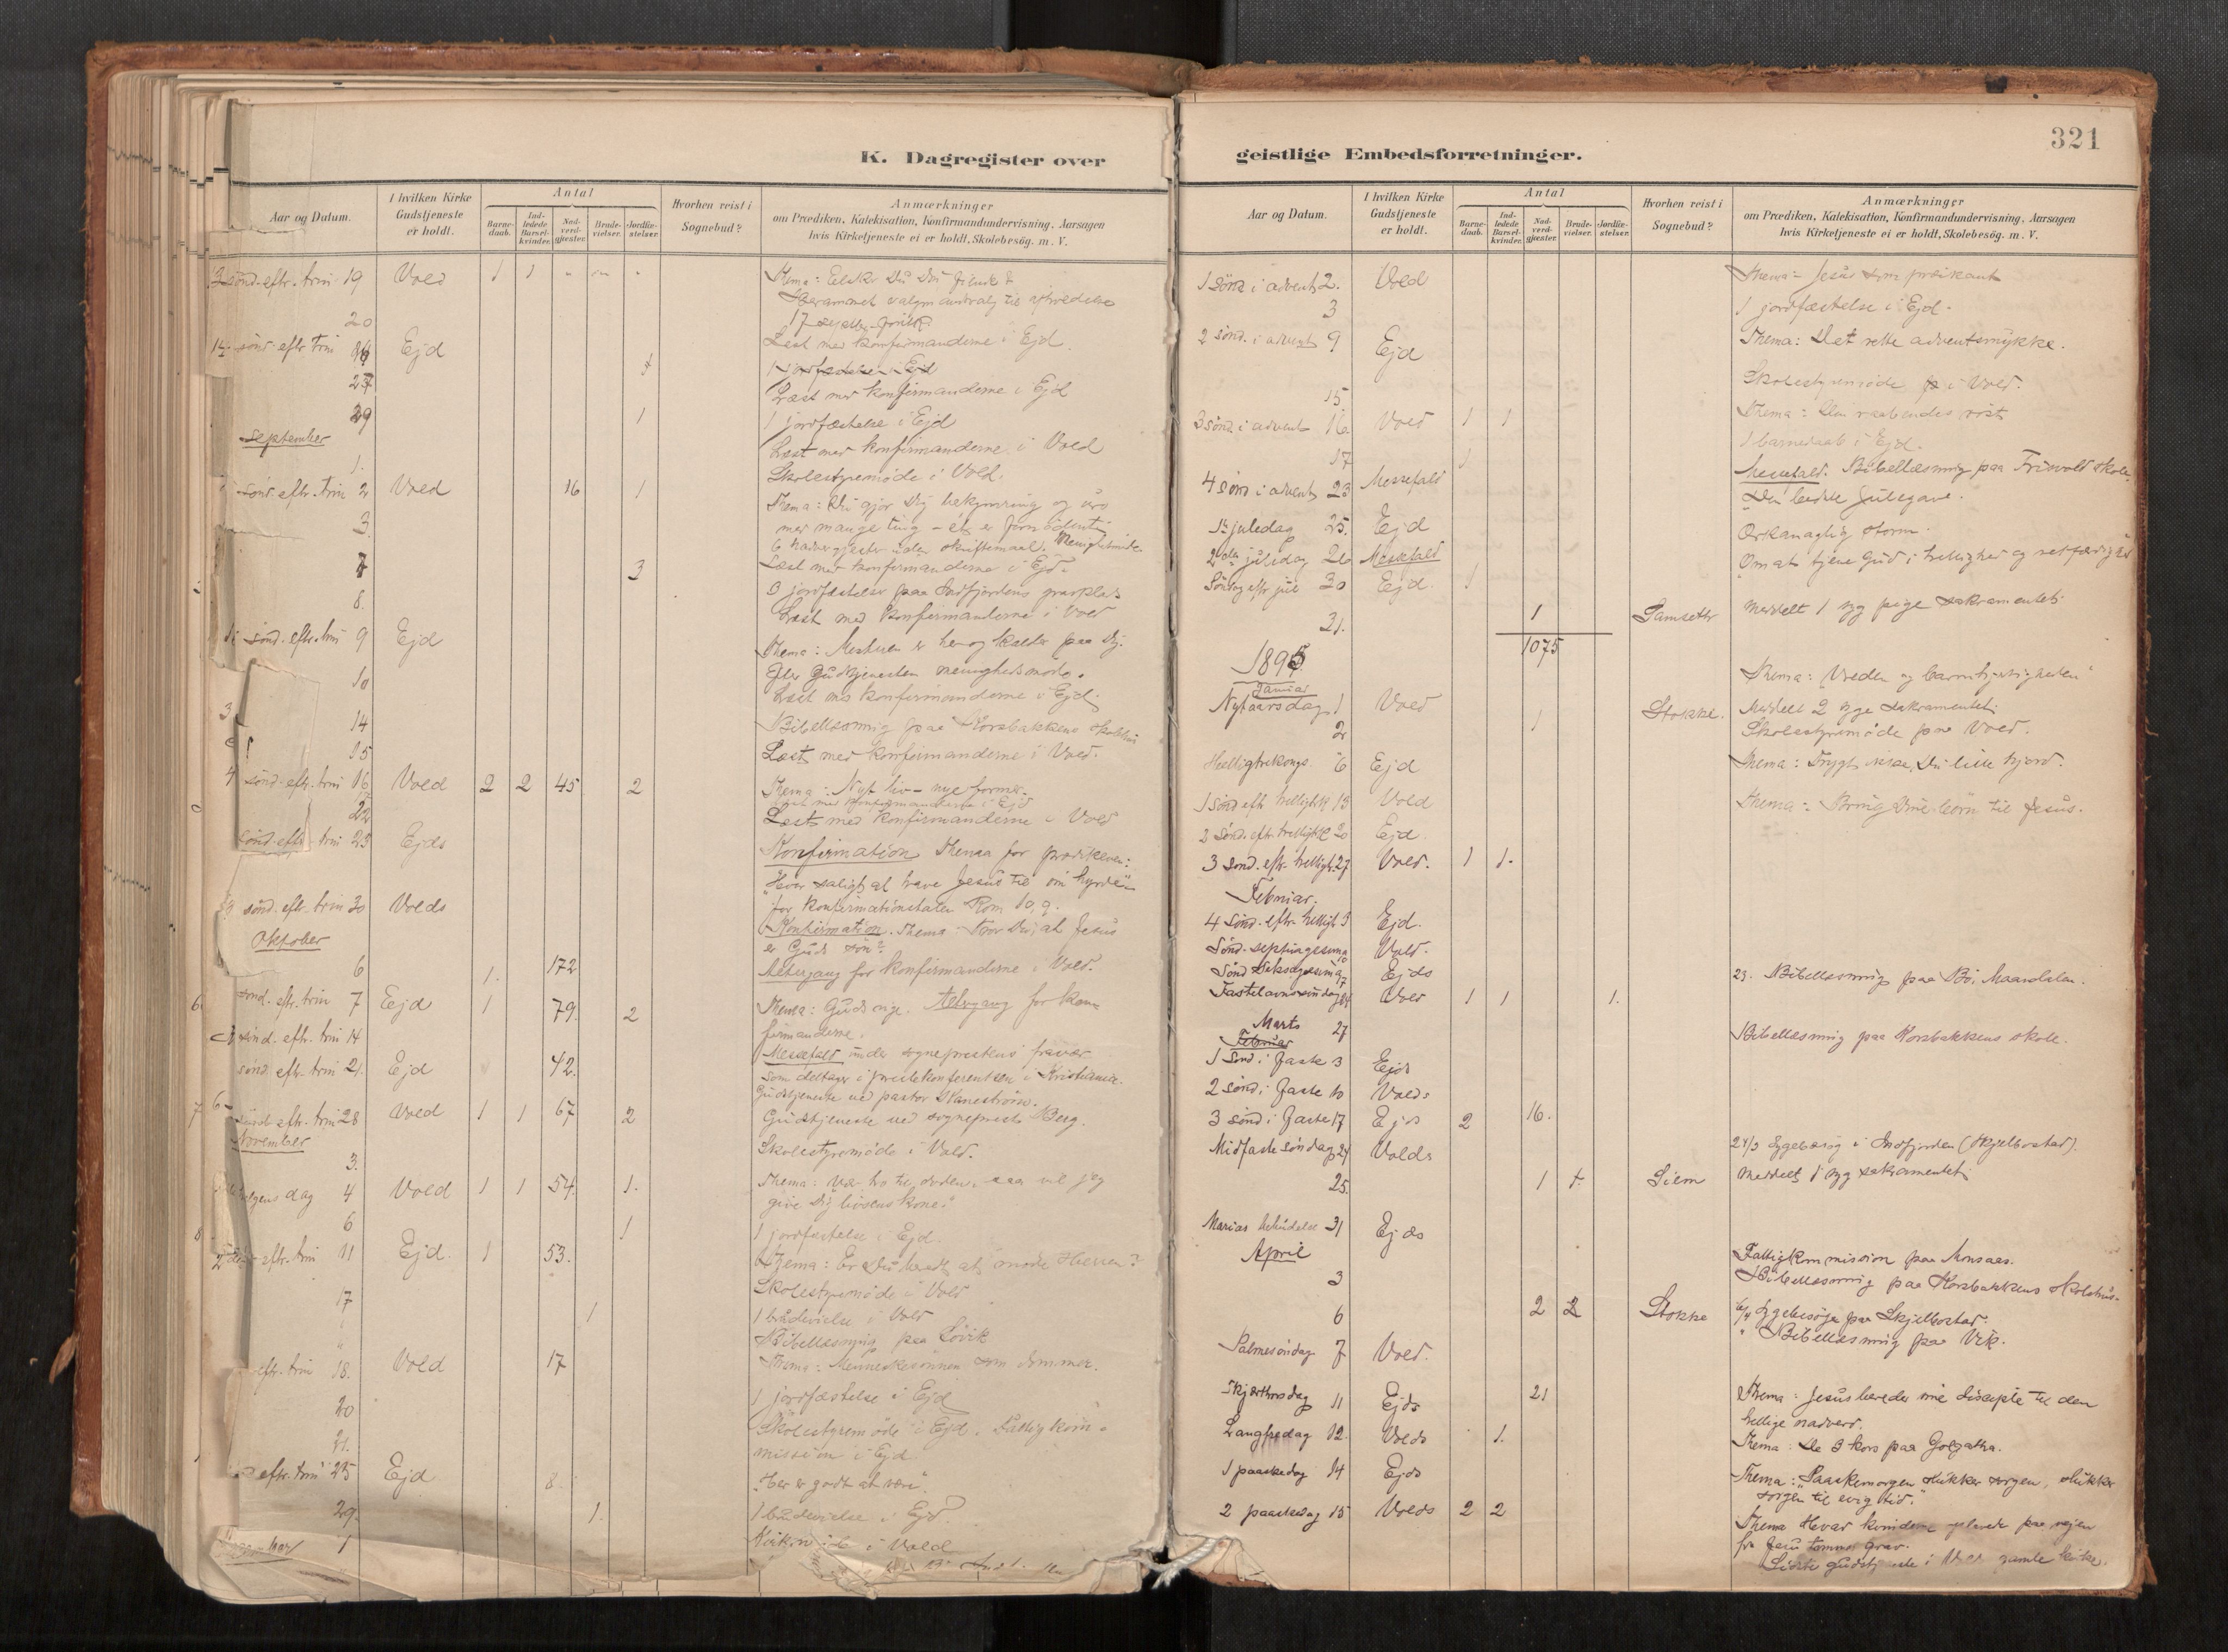 K. Dagregister over
Aar og Datum.
I hvilken Kirke Gudstjeneste er holdt.
Antal
Barnedaab.
Indledede Barselkvinder.
Nadverdgjester.
Brudevielser.
Jordfæstelser.
Hvorhen reist i Sognebud?
Anmærkninger
om Prædiken, Katekisation, Konfirmandundervisning, Aarsagen
hvis Kirketjeneste ei er holdt, Skolebesög. m. V.
sønd. eftr. trin 19 Vold 1 1 Thema: Elsker Du Din
20
sønd eftr trin 26 Ejd Læst med konfirmanderne i Ejd.
27 1 jordfæstelse i Ejd
Læst med konfirmanderne i Ejd
29 1 1 jordfæstelse i Ejd
September
1. Læst med konfirmanderne i Vold
Skolestyremøde i Vold.
sønd eftr. trin 2 Vold 16 1 Thema: Du gjør Dig bekymring og uro
med mange ting – et er fornødent
3. 6 nadvergjester uden skriftemaal.
Læst med konfirmanderne i Ejd.
7 3 3 jordfæstelser paa Indfjordens gravplads
8. Læst med konfirmanderne i Vold
sønd. eftr. trin 9 Ejd Thema: Mesteren er her og kalder paa Dig.
Efter Gudstjenesten menighedsmøde.
10 Læst med konfirmanderne i Ejd.
14 Bibellæsning paa Korsbakkens skolehus
15 Læst med konfirmanderne i Vold.
sønd. eftr. trin 16 Vold 2 2 45 2 Thema: Nyt liv – nye former.
Læst med konfirmanderne i Ejd
22 Læst med konfirmanderne i Vold
sønd. eftr. trin 23 Ejds Konfirmation Thema for prædikenen:
"Hvor saligt at have Jesus til sin hyrde"
for konfirmationstalen Rom 10,9.
sønd. eftr. trin 30 Volds Konfirmation. Thema Tror Du, at Jesus
er Guds søn?
Oktober
6 1. 172 Altergang for konfirmanderne i Vold.
sønd. eftr. trin 7 Ejd 1 79. 2 Thema: Guds rige. Altergang for kon-
firmanderne.
sønd. eftr. trin 14 Messefald under sogneprestens fravær
som deltager i prestekonferentsen i Kristiania.
sønd. eftr. trin 21. Ejd 42. Gudstjeneste ved pastor
sønd. eftr. trin 28 Vold 1 1 67 2 Gudstjeneste ved sogneprest Berg.
November
3. Skolestyremøde i Vold.
helgens dag 4 Vold 1 1 54. 1. Thema: Vær tro til døden, saa vil jeg
give Dig livsens krone."
6 1 1 jordfæstelse i Ejd.
eftr. trin 11 Ejd. 1 53. Thema: Er Du beredt at møde Herren?
Skolestyremøde i Vold
17 1 1 brudevielse i Vold
Bibellæsning paa Søvik
eftr. trin 18. Vold 17 Thema: Menneskesønnen som dommer.
20 1 jordfæstelse i Ejd
21. Skolestyremøde i Ejd. Fattigkom-
mission i Ejd.
eftr. trin 25 Ejd 8. "Her er godt at være".
29. 1. 1 brudevielse i Ejd.
1 i Vold
geistlige Embedsforretninger.
321
Aar og Datum.
I hvilken Kirke Gudstjeneste er holdt.
Antal
Barnedaab.
Indledede Barselkvinder.
Nadverdgjæster.
Brudevielser.
Jordfæstelser.
Hvorhen reist i Sognebud?
Anmærkninger
om Prædiken, Katekisation, Konfirmandundervisning, Aarsagen
hvis Kirketjeneste ei er holdt, Skolebesög. m. V.
1 sønd i advent 2. Vold Thema = Jesus som prædikant
3 1 jordfæstelse i Ejd.
2 sønd. i advent 9 Ejd Thema: Det rette adventsmykke.
15 Skolestyremøde i Vold.
3 sønd. i advent 16 Vold 1 1 Thema: Den raabendes røst
17 1 1 barnedaab i Ejd.
4 sønd i advent 23 Messefald Messefald. Bibellæsning paa Frisvold skole.
1te juledag 25. Ejd "Den bedste Julegave.
2den juledag 26 Messefald Orkanagtig storm.
Søndag eftr jul 30 Ejd. 1 "Om at tjene Gud i hellighed og retfærdighed"
31. 1 Samseth Meddelt 1 syg pige sakramentet
1075
1895
Januar
Nytaarsdag 1 Vold Thema: "Vreden og barmhjertigheden"
2 1 Stokke. Meddelt 2 syge sakramentet.
Skolestyremøde paa Vold.
Helligtrekongs. 6 Ejd Thema: Frygt ikke, Du lille hjord.
1 sønd eftr helligt 13 Vold Thema: Bring Dine børn til Jesus.
2 sønd. eftr. helligt 20 Ejd.
3 sønd. eftr. helligt. 27 Vold. 1 1.
Februar.
4 sønd. eftr. helligt 3 Ejd.
Sønd. septuagesima 10 Vold.
Sønd Seksagesima 17 Ejds 23. Bibellæsning paa Bø, Maandalen.
Fastelavnssøndag 24 Vold 1 1 1.
27 Bibellæsning paa Korsbakkens skole.
Marts
Februar
1 Sønd. i Faste 3 Ejds
2 sønd i Faste 10 Volds
3 sønd i Faste 17 Ejds 2 16.
Midfaste søndag 24 Volds 24/3 Sygebesøg i Indfjorden (Skjelbostad).
25. 1 Siem Meddelt 1 syg sakramentet
Marias bebudelse 31 Ejds
April
3 Fattigkommission paa Monsaas.
Bibellæsning paa Korsbakkens skolehus.
6 2 2 Stokke 6/4 Sygebesøg paa Skjelbostad.
" Bibellæsning paa Vik.
Palmesøndag 7 Vold.
Skjærthorsdag 11 Ejds 21 Thema: Jesus bereder sine disciple til den
hellige nadverd.
Langfredag 12. Volds 1. Thema: De 3 kors paa Golgatha.
1 paaskedag 14 Ejds Thema: "Paaskemorgen slukker sorgen, slukker
sorgen til evig tid."
2 paaskedag 15 Volds 2 2 Thema Hvad kvinderne oplevede paa vejen
fra Jesu tomme grav.
Sidste gudstjeneste i Volds gamle kirke.